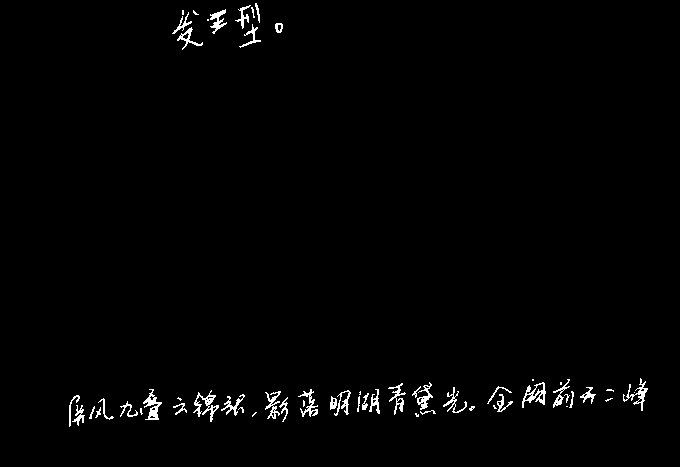 发型。
屏风九叠云锦张,影落明湖青黛光。金阙前开二峰